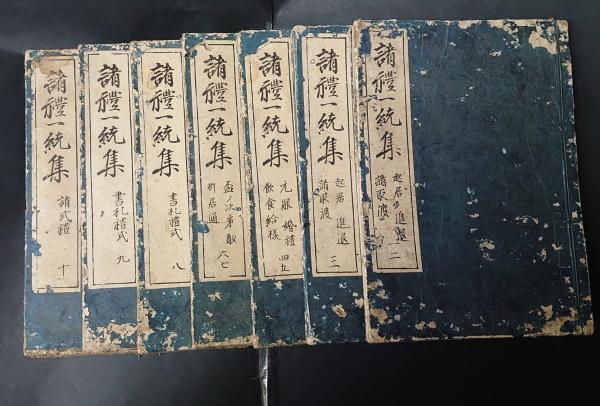 諸禮一統集
起居 進退
諸取渡
二
諸禮一統集
起居 進退
諸取渡
三
諸禮一統集
元服 婚禮
飲食給様
四五
諸禮一統集
盃ノ次第取
六七
諸禮一統集
書札禮式
八
諸禮一統集
書札禮式
九
諸禮一統集
諸式禮
十